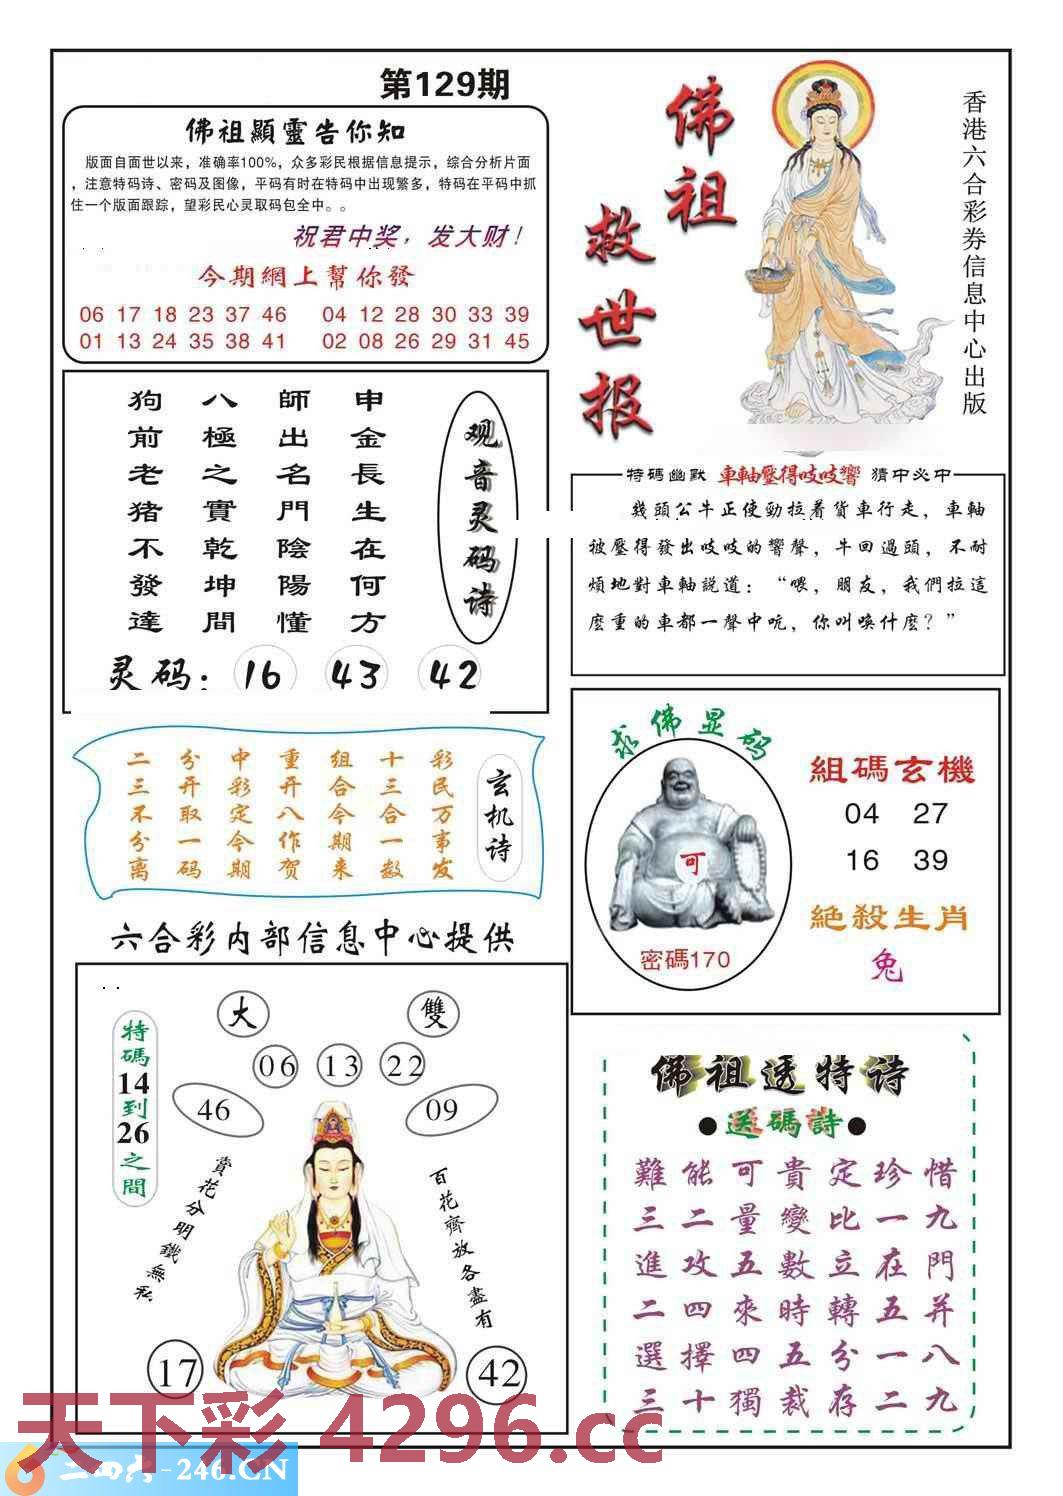 第129期
佛祖顯靈告你知
版面自面世以来，准确率100%，众多彩民根据信息提示，综合分析片面
，注意特码诗、密码及图像，平码有时在特码中出现繁多，特码在平码中抓
住一个版面跟踪，望彩民心灵取码包全中。。
祝君中奖，发大财！
今期網上幫你發
06 17 18 23 37 46 04 12 28 30 33 39
01 13 24 35 38 41 02 08 26 29 31 45
佛祖
救世报
香港六合彩券信息中心出版
观音灵码诗
申金長生在何方
師出名門陰陽懂
八極之實乾坤間
狗前老猪不發達
灵码：16 43 42
特碼幽默 車軸壓得吱吱響 猜中必中
幾頭公牛正使勁拉着貨車行走，車軸
被壓得發出吱吱的響聲，牛回過頭，不耐
煩地對車軸説道：“喂，朋友，我們拉這
麽重的車都一聲中吭，你叫唤什麽？”
玄机诗
彩民万事发
十三合一数
组合今期来
重开八作贺
中彩定今期
分开取一码
二三不分离
求佛显码
可
密碼170
組碼玄機
04 27
16 39
絶殺生肖
兔
六合彩内部信息中心提供
特碼14到26之間
大 雙
06 13 22
46 09
賞花分明鐵無私
百花齊放各盡有
17 42
佛祖透特诗
●送碼詩●
難能可貴定珍惜
三二量變比一九
進攻五數立在門
二四來時轉五并
選擇四五分一八
三十獨裁存二九
天下彩 4296.cc
二四六-246.CN